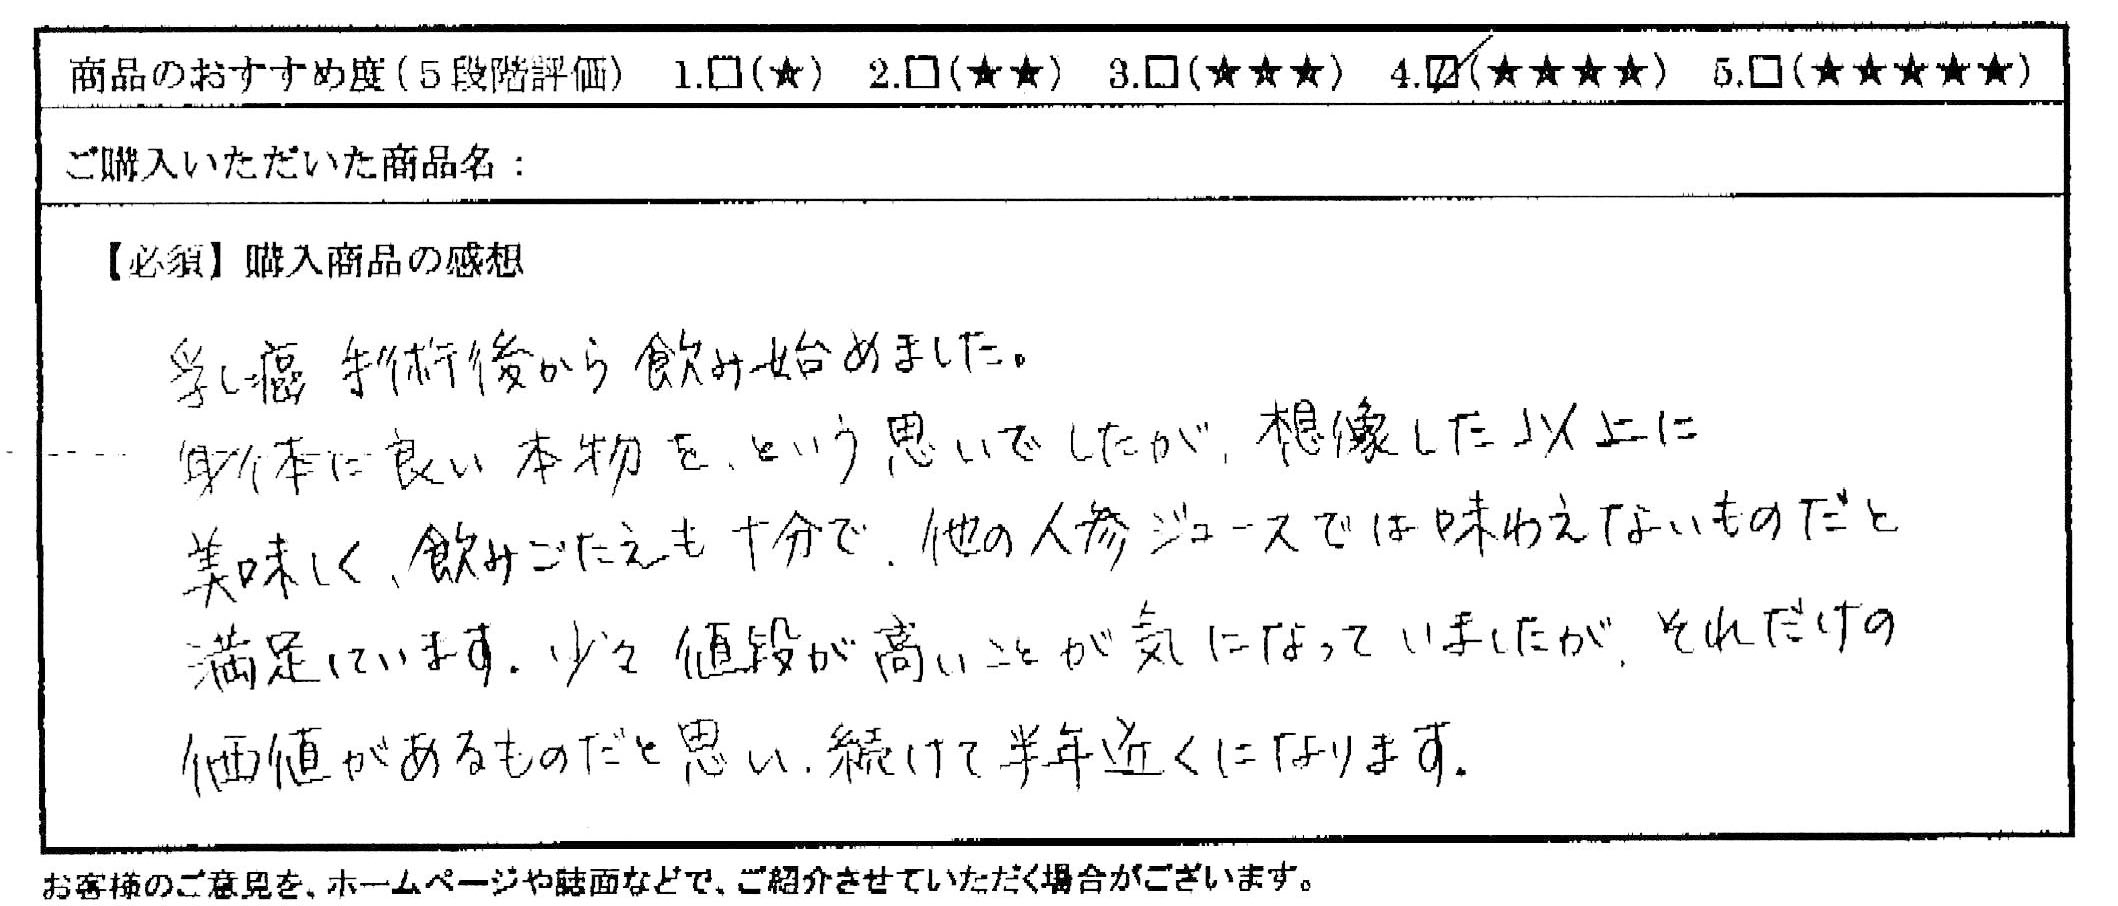 商品のおすすめ度(5段階評価) 1.□(★) 2.□(★★) 3.□(★★★) 4.☑(★★★★) 5.□(★★★★★)
ご購入いただいた商品名：
【必須】購入商品の感想
乳癌 手術後から飲み始めました。
身体に良い本物を、という思いでしたが、想像した以上に
美味しく、飲みごたえも十分で、他の人参ジュースでは味わえないものだと
満足しています。少々値段が高いことが気になっていましたが、それだけの
価値があるものだと思い、続けて半年近くになります。
お客様のご意見を、ホームページや誌面などで、ご紹介させていただく場合がございます。